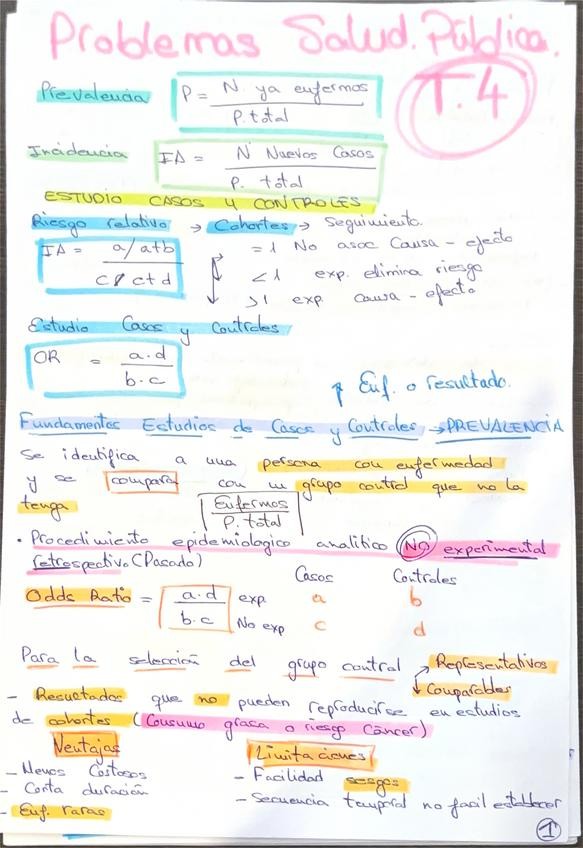 Problemas Salud. Pública.
T.4
Prevalencia P = N. ya enfermos / P. total
Incidencia IA = N Nuevos Casos / P. total
ESTUDIO CASOS Y CONTROLES
Riesgo relativo → Cohortes → Seguimiento.
IA = a/a+b / c/c+d
= 1 No asoc Causa - efecto
< 1 exp. elimina riesgo
> 1 exp causa - efecto
Estudio Casos y Controles
OR = a.d / b.c
↑ Enf. o resultado.
Fundamentos Estudios de Casos y Controles → PREVALENCIA
Se identifica a una persona con enfermedad
y se compara con un grupo control que no la
tenga
Enfermos / P. total
• Procedimiento epidemiologico analítico NO experimental
retrospectivo (Pasado)
Casos Controles
Odds Ratio = a.d / b.c exp a b
No exp c d
Para la selección del grupo control → Representativos
↓ Comparables
- Resultados que no pueden reproducirse en estudios
de cohortes (Consumo grasa o riesgo Cáncer)
Ventajas
- Menos Costosos
- Corta duración
- Enf. raras
Limitaciones
- Facilidad sesgos
- Secuencia temporal no facil establecer
1